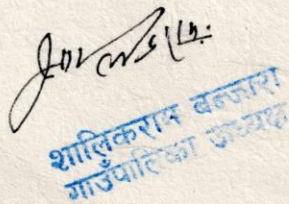 शालिकराम बन्जारा
गाउँपालिका अध्यक्ष